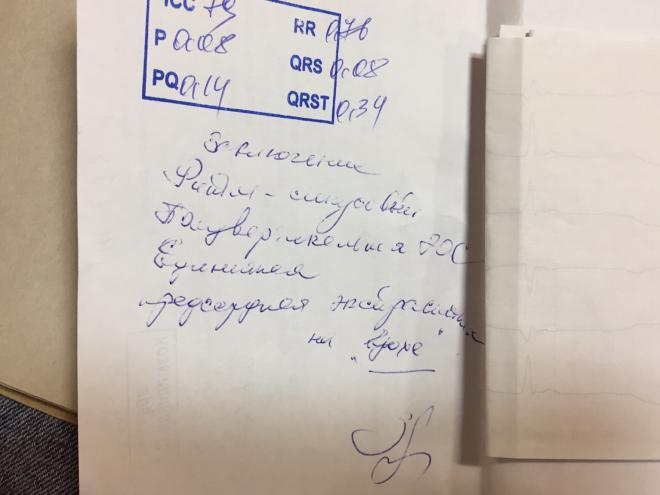 ЧСС 79 RR 0,76
P 0.08 QRS 0,08
PQ 0,14 QRST 0,34
Заключение
Ритм - синусовый
Полувертикальная ЭОС
Единичная
предсердная экстрасистола
на "вдохе"